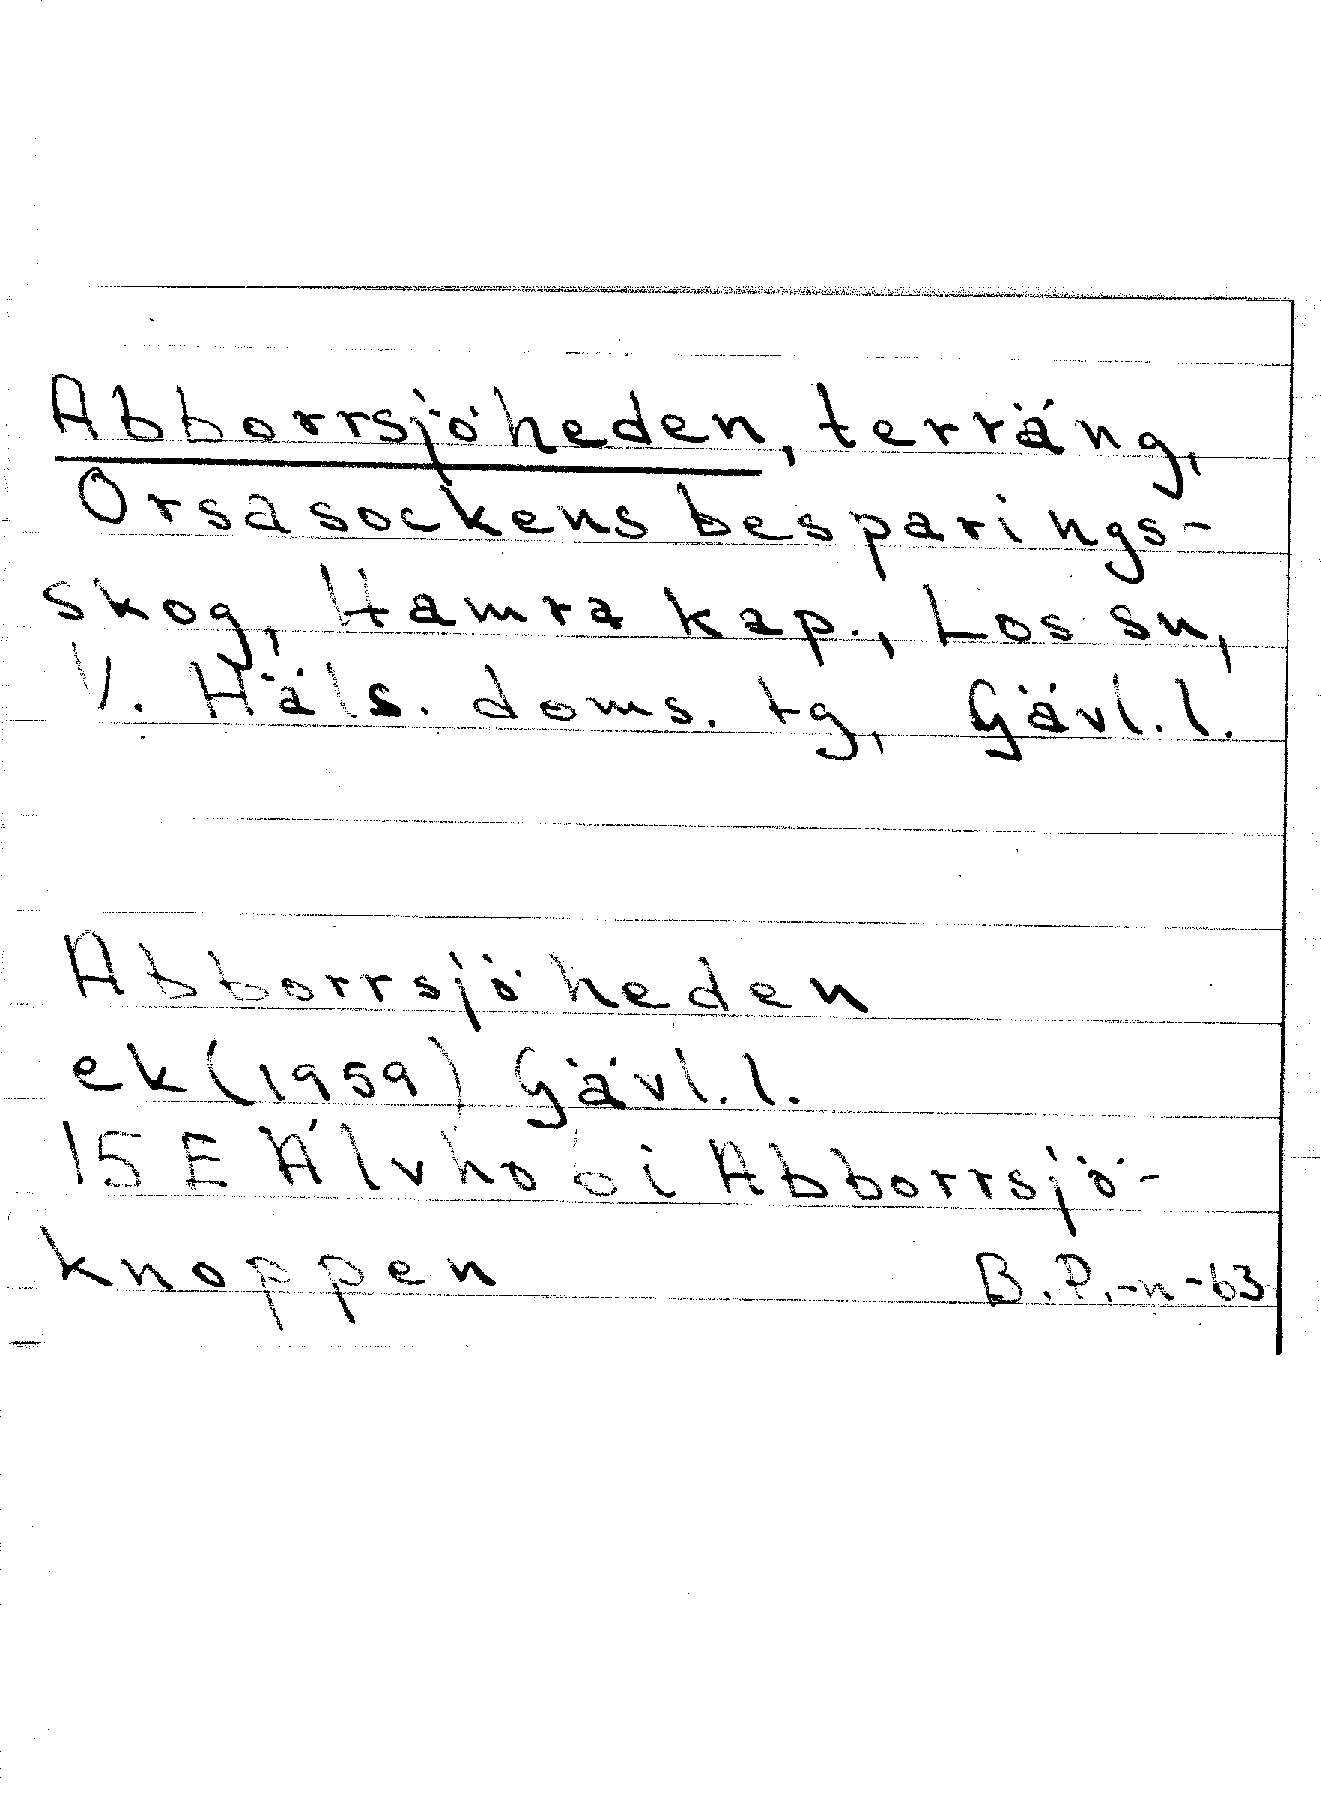 Abborrsjöheden, terräng,
Orsasockens besparings-
skog, Hamra kap., Los sn,
V. Häls. doms. tg, Gävl. l.
Abborrsjöheden
ek (1959) Gävl. l.
15 E Älvho öi Abborrsjö-
knoppen
B. P.-n-63